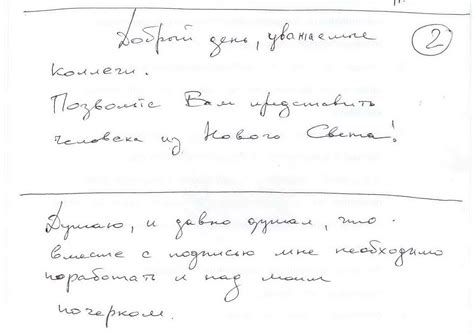 Добрый день, уважаемые
2
коллеги.
Позвольте Вам представить
человека из Нового Света!
Думаю, и давно думал, что
вместе с подписью мне необходимо
поработать и над моим
почерком.